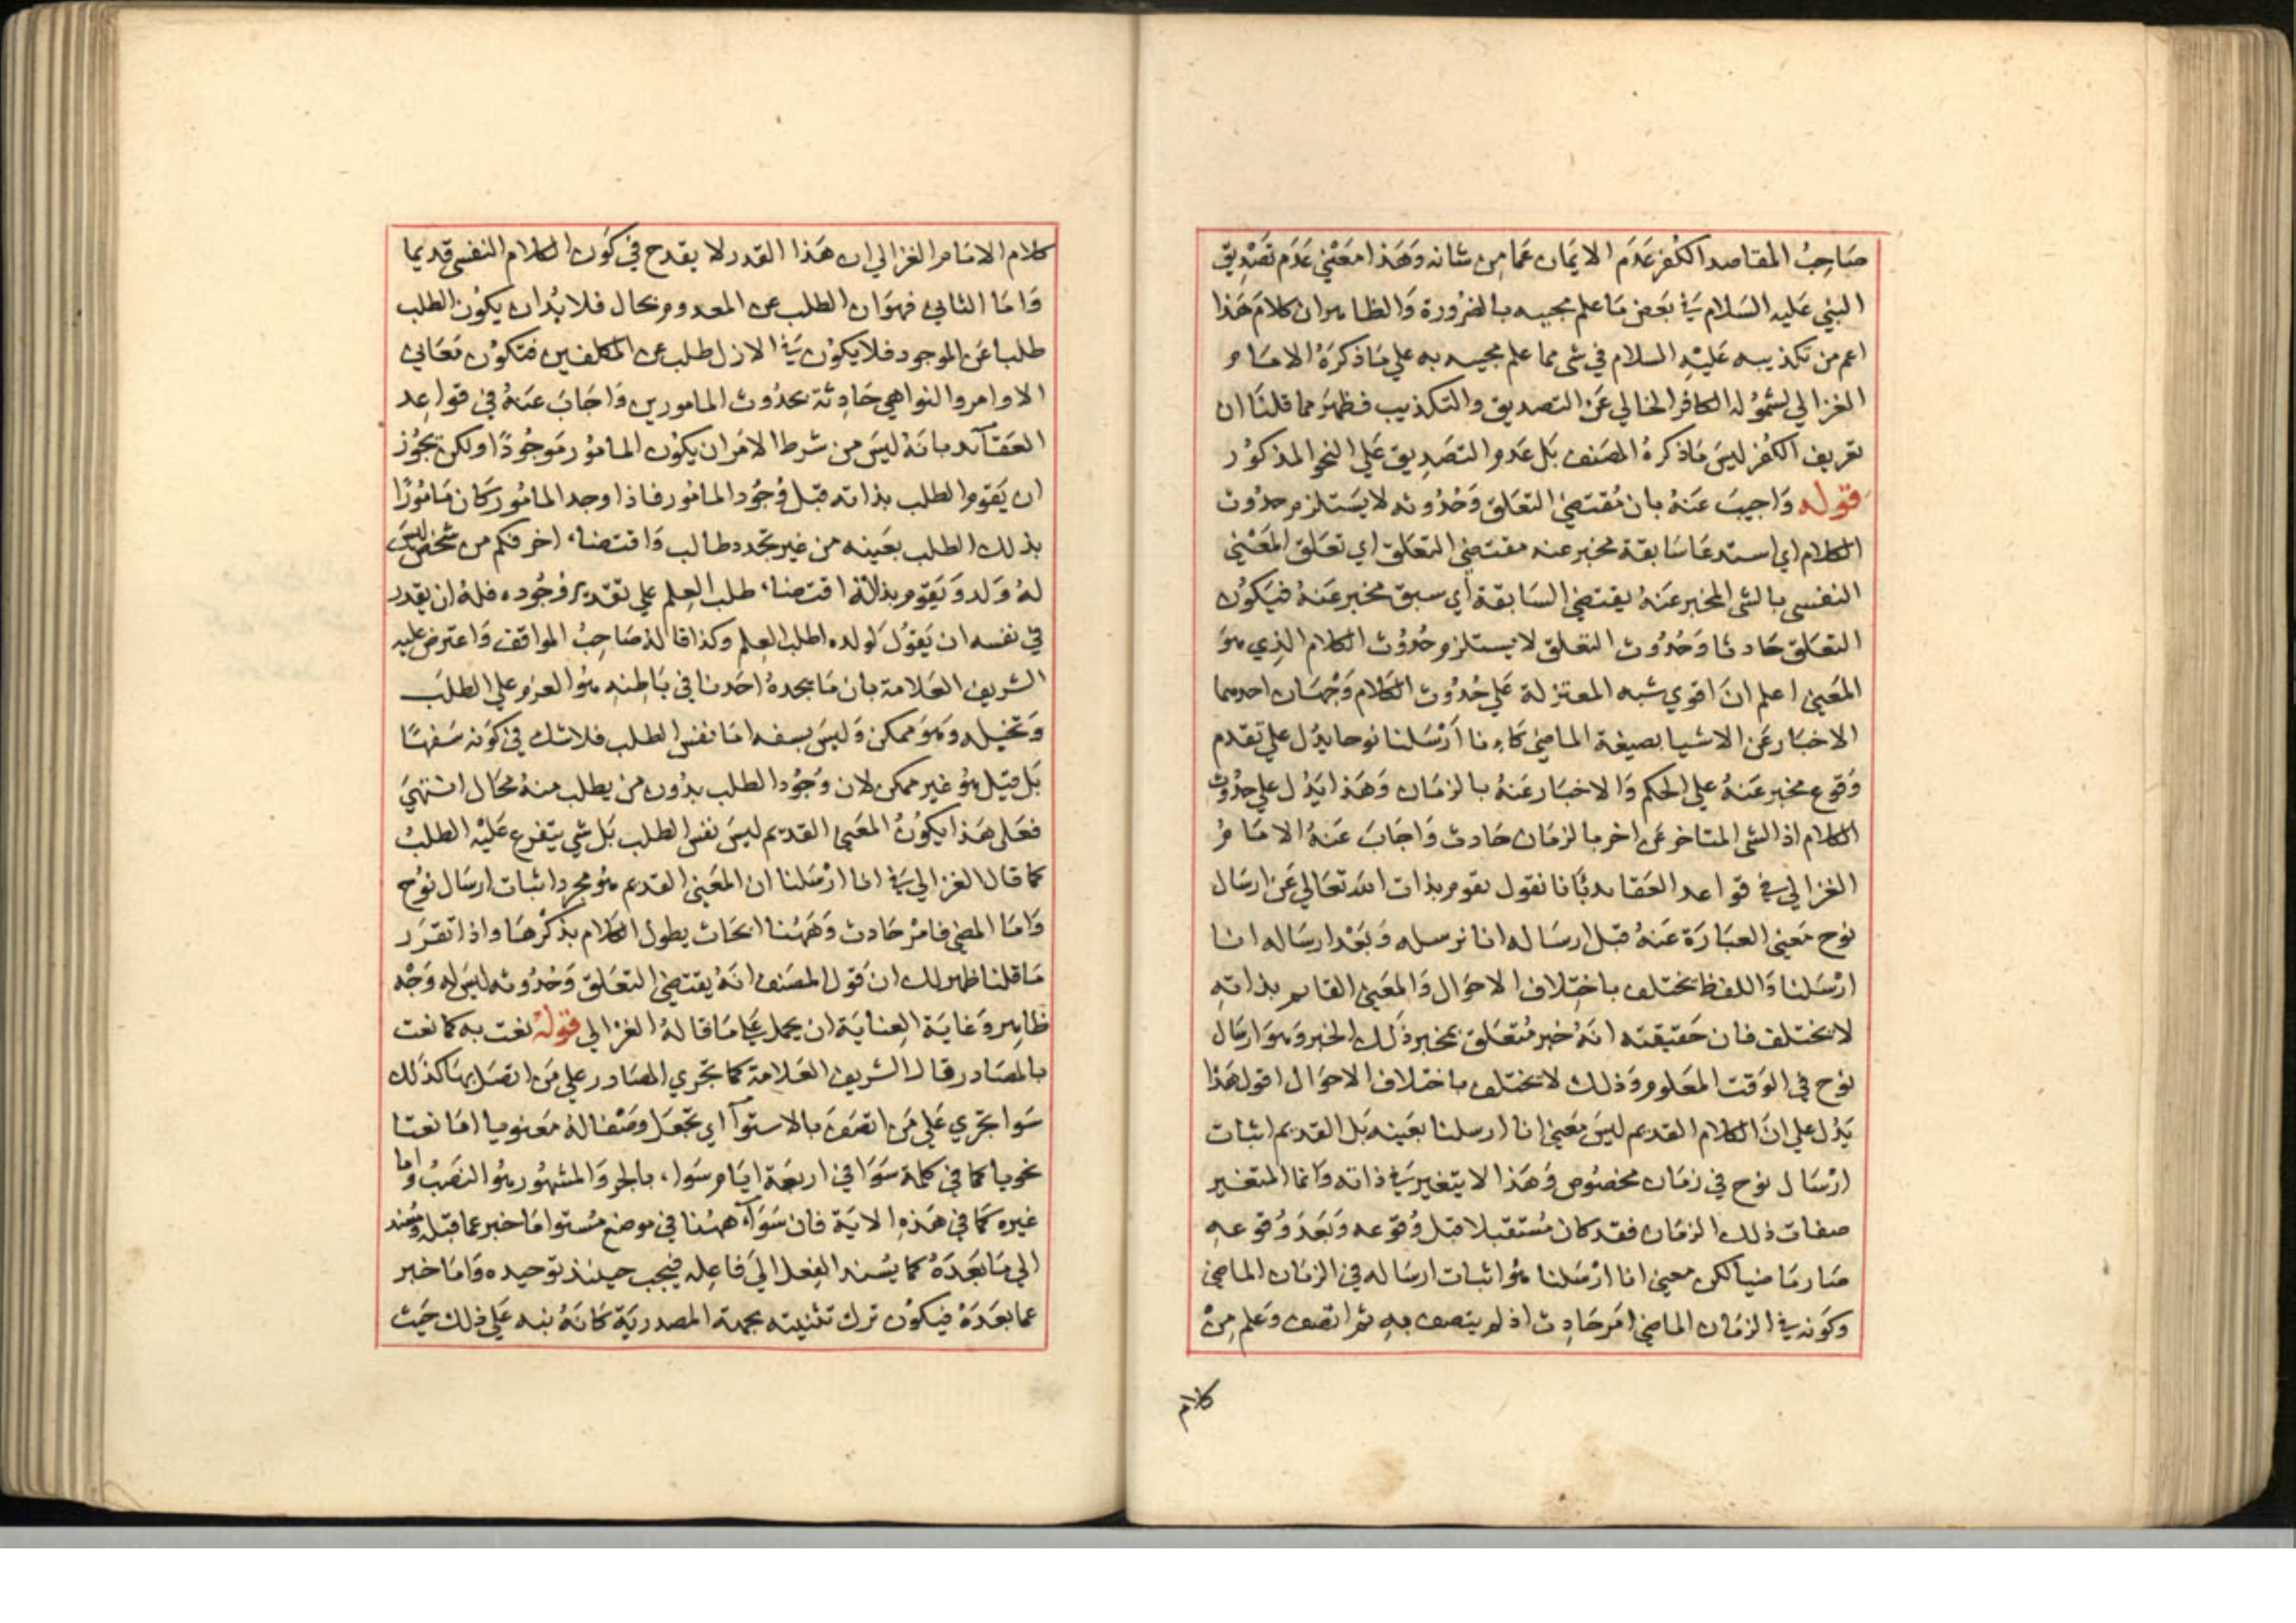 صاحب المقاصد الكفر عدم الايمان عما من شانه وهذا معني عدم تصديق
النبي عليه السلام في بعض ما علم مجيه به بالضرورة والظاهر ان كلام هذا
اعم من تكذيبه عليه السلام في شي مما علم مجيه به علي ما ذكره الامام
الغزالي لشموله الكافر الخالي عن التصديق والتكذيب فظهر مما قلنا ان
تعريف الكفر ليس ما ذكره المصنف بل عدم التصديق علي النحو المذكور
قوله واجيب عنه بان مقتضي التعلق وحدوثه لا يستلزم حدوث
الكلام اي استدعا سابقة مخبر عنه مقتضي التعلق اي تعلق المعني
النفسي بالشي المخبر عنه يقتضي السابقة أي سبق مخبر عنه فيكون
التعلق حادثا وحدوث التعلق لا يستلزم حدوث الكلام الذي هو
المعني اعلم ان اقوي شبه المعتزلة علي حدوث الكلام وجهان احدهما
الاخبار عن الاشيا بصيغة الماضي كاءنا أرسلنا نوحا يدل علي تقدم
وقوع مخبر عنه علي الحكم والاخبار عنه بالزمان وهذا يدل علي حدوث
الكلام اذ الشي المتاخر عن اخر بالزمان حادث واجاب عنه الامام
الغزالي في قواعد العقايد بانا نقول يقوم بذات الله تعالي عن ارسال
نوح معني العبارة عنه قبل ارساله انا نرسله وبعد ارساله انا
ارسلنا واللفظ يختلف باختلاف الاحوال والمعني القايم بذاته
لا يختلف فان حقيقته انه خبر متعلق بمخبر ذلك الخبر وهو ارسال
نوح في الوقت المعلوم وذلك لا يختلف باختلاف الاحوال اقول هذا
يدل علي ان الكلام القديم ليس معني انا ارسلنا بعينه بل القديم اثبات
ارسال نوح في زمان مخصوص وهذا لا يتغير في ذاته وانما المتغير
صفات ذلك الزمان فقد كان مستقبلا قبل وقوعه وبعد وقوعه
صار ماضيا لكن معني انا ارسلنا هو اثبات ارساله في الزمان الماضي
وكونه في الزمان الماضي امر حادث اذ لم يتصف به ثم اتصف وعلم من
كلام
كلام الامام الغزالي ان هذا القدر لا يقدح في كون الكلام النفسي قديما
واما الثاني فهو ان الطلب عن المعدوم محال فلا بد ان يكون الطلب
طلبا عن الموجود فلا يكون في الازل طلب عن المكلفين فتكون معاني
الاوامر والنواهي حادثة بحدوث المامورين واجاب عنه في قواعد
العقآئد بانه ليس من شرط الامر ان يكون المامور موجودا ولكن يجوز
ان يقوم الطلب بذاته قبل وجود المامور فاذا وجد المامور كان مامورا
بذلك الطلب بعينه من غير تجدد طالب واقتضاء اخر فكم من شخص ليس
له ولد ويقوم بذاته اقتضاء طلب العلم علي تقدير وجوده فله ان يقدر
في نفسه ان يقول لولده اطلب العلم وكذا قاله صاحب المواقف واعترض عليه
الشريف العلامة بان ما يجده احدنا في باطنه هو العزم علي الطلب
وتخيله وهو ممكن وليس بسفه اما نفس الطلب فلا شك في كونه سفها
بل قيل هو غير ممكن لان وجود الطلب بدون من يطلب منه محال انتهي
فعلي هذا يكون المعني القديم ليس نفس الطلب بل شي يتفرع عليه الطلب
كما قال الغزالي في انا ارسلنا ان المعني القديم هو مجرد اثبات ارسال نوح
واما المضي فامر حادث وههنا ابحاث يطول الكلام بذكرها واذا تقرر
ما قلنا ظهر لك ان قول المصنف انه يقتضي التعلق وحدوثه ليس له وجه
ظاهر وغاية العناية ان يحمل علي ما قاله الغزالي قوله نعت به كما نعت
بالمصادر قال الشريف العلامة كما تجري المصادر علي من اتصل بها كذلك
سوا تجري علي من اتصف بالاستوآ اي تجعل وصفا له معنويا اما نعتا
نحويا كما في كلمة سوا في اربعة ايام سواء بالجر والمشهور هو النصب واما
غيره كما في هذه الاية فان سوآء ههنا في موضع مستو اما خبر عما قبله ومسند
الي ما بعده كما يسند الفعل الي فاعله فيجب حينئذ توحيده واما خبر
عما بعده فيكون ترك تثنيته بجهة المصدرية كانه بنه علي ذلك حيث